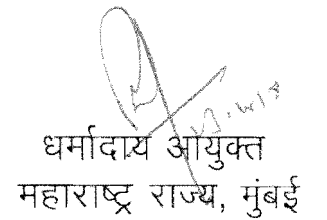 धर्मादाय आयुक्त
महाराष्ट्र राज्य, मुंबई